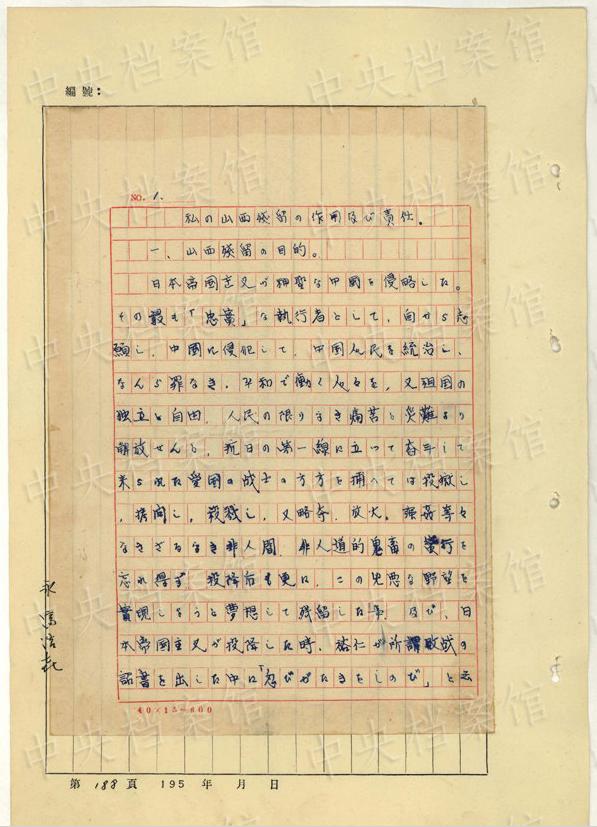 編號：
NO. 1.
私の山西残留の作用及び責任。
一、山西残留の目的。
日本帝国主义が神聖な中国を侵略した。
その最も「忠實」な執行者として、自から志
願し、中国に侵犯して、中国人民を統治し、
なんら罪なき、平和で働く人々を、又祖国の
独立と自由、人民の限りなき痛苦と災難より
解放せんと、抗日の第一線に立つて奋斗して
来られた愛国の战士の方方を捕へては投獄し
、拷问し、殺戮し、又略夺、放火、強姦等々
なさざるなき非人間、非人道的鬼畜の蛮行を
忘れ得ず、投降后も更に、この兇悪な野望を
實現しようと夢想して残留した事、及び、日
本帝国主义が投降した時、裕仁が所謂敗战の
詔書を出した中に「忍びがたきをしのび」と云
40×15=600
永富浩喜
第 188 頁 195 年 月 日
中央档案馆